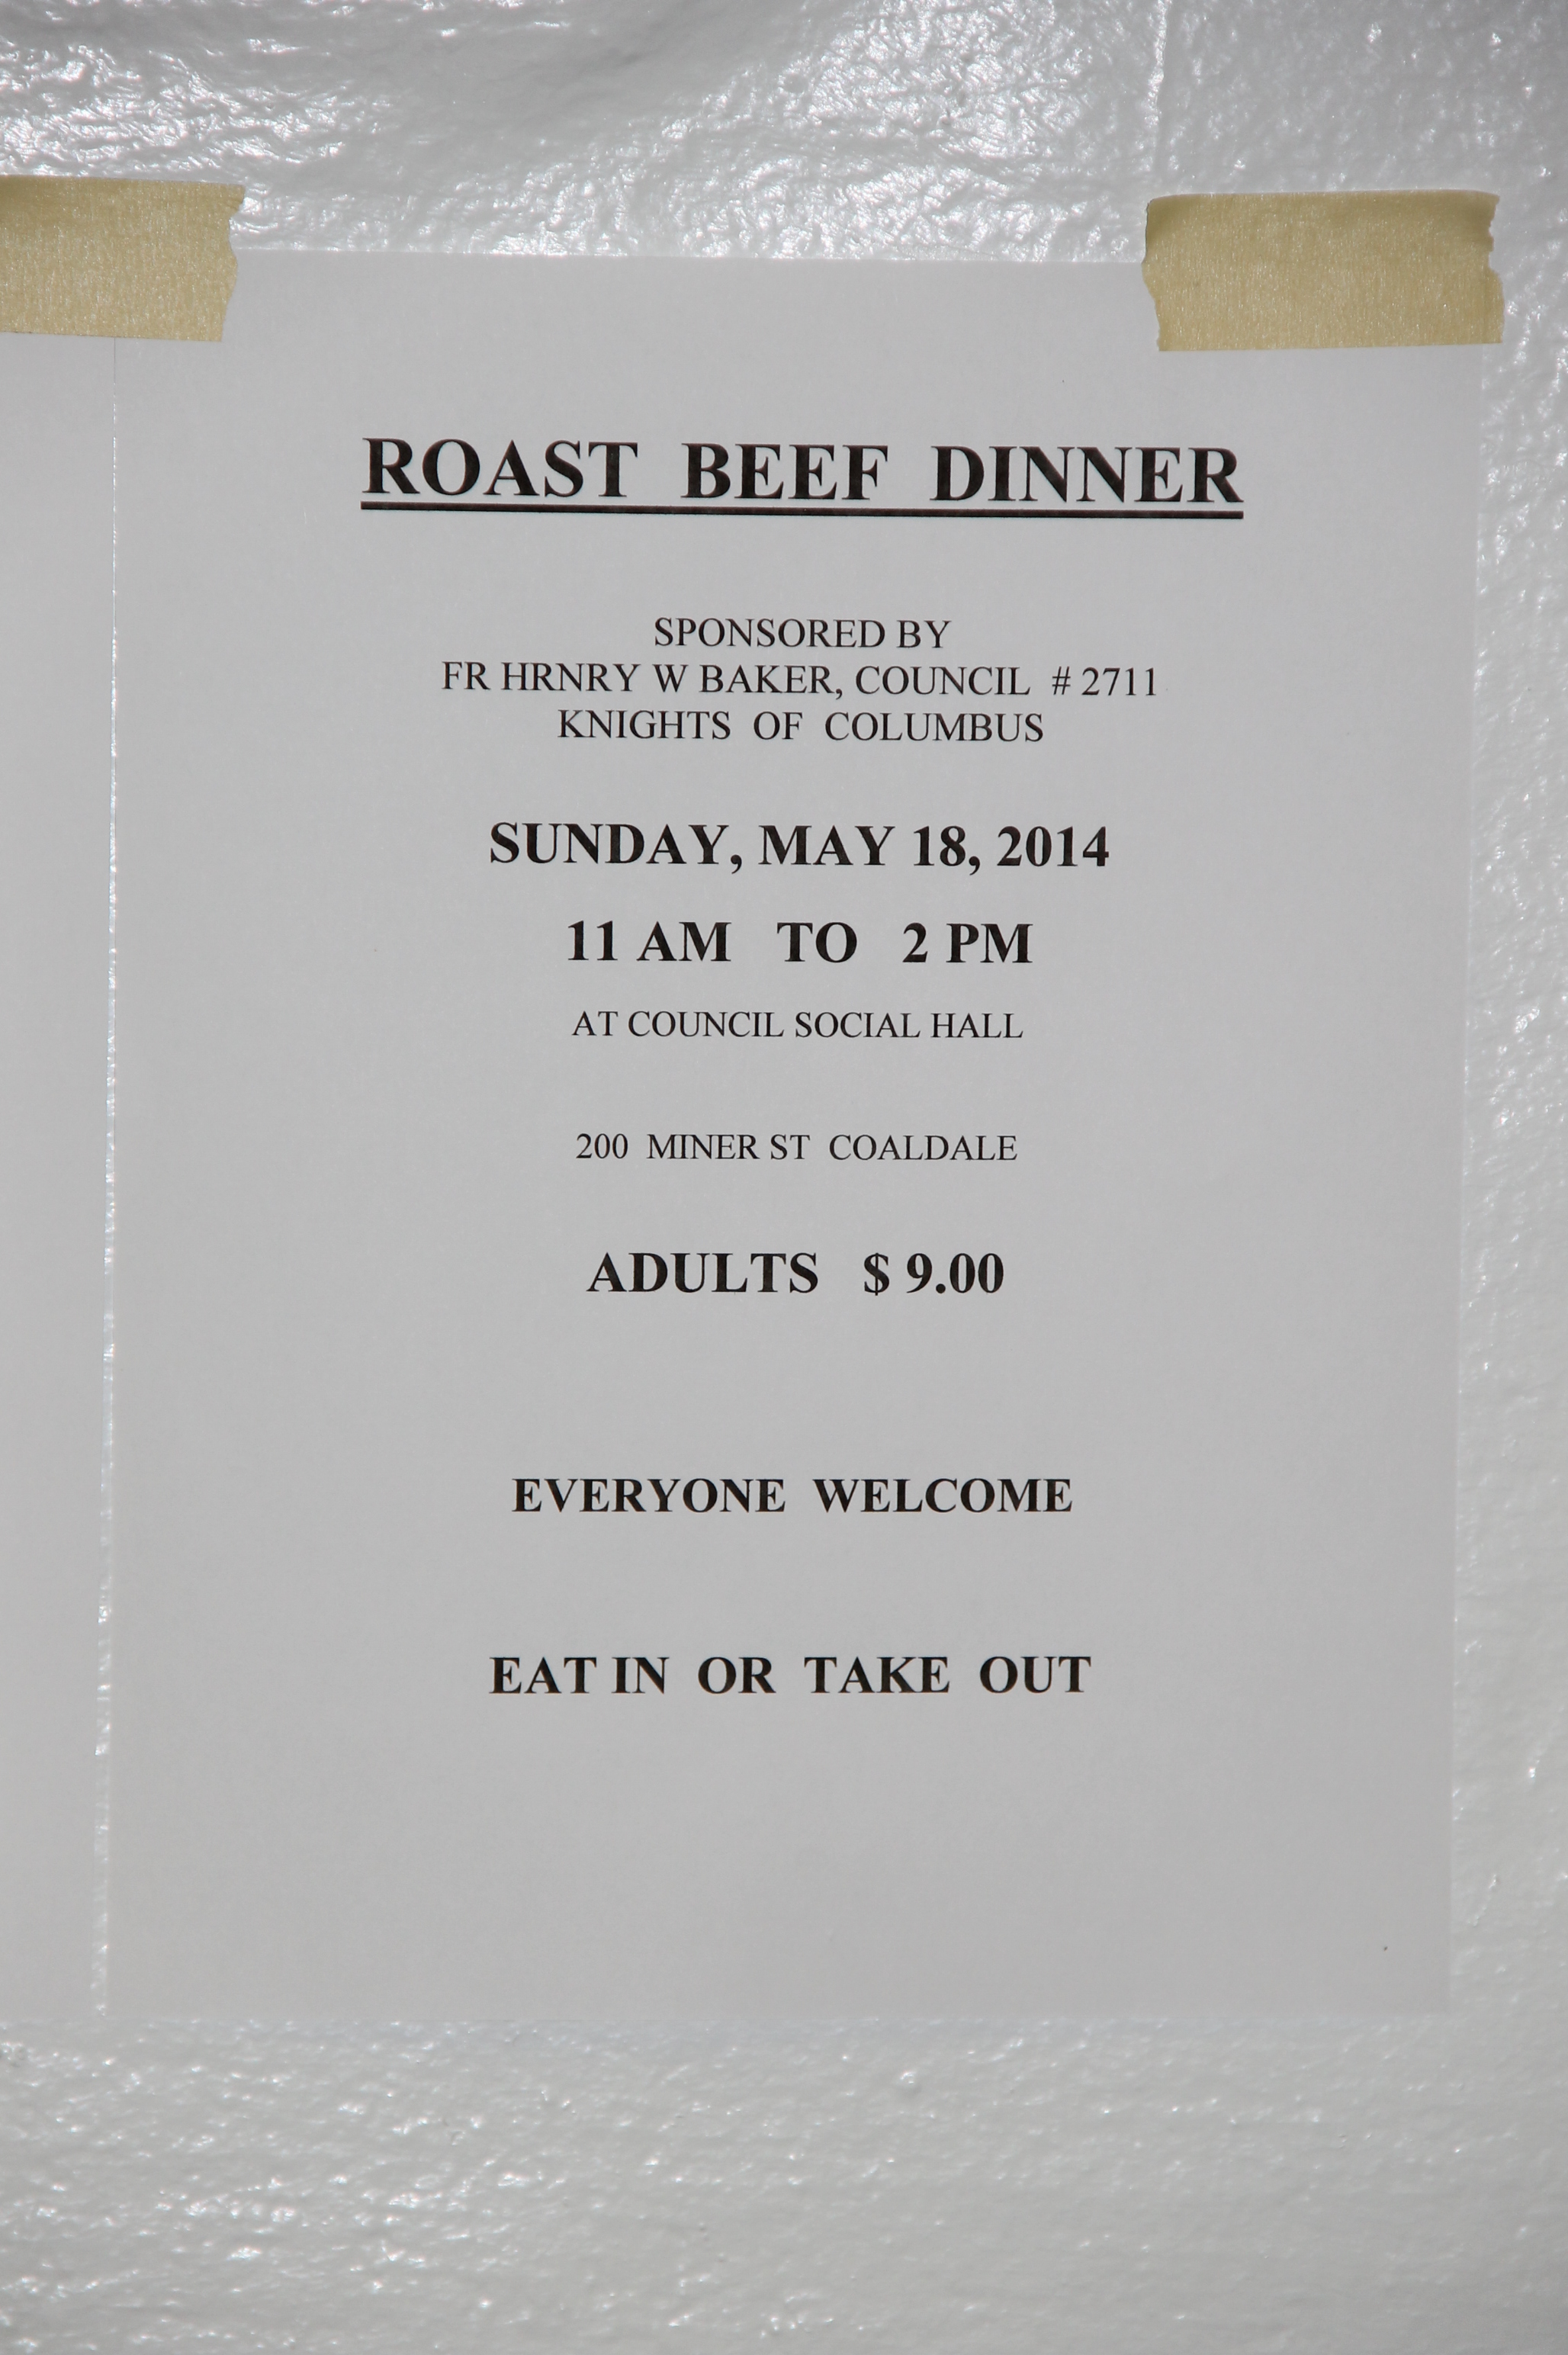 ROAST BEEF DINNER
SPONSORED BY
FR HRNRY W BAKER, COUNCIL # 2711
KNIGHTS OF COLUMBUS
SUNDAY, MAY 18, 2014
11 AM TO 2 PM
AT COUNCIL SOCIAL HALL
200 MINER ST COALDALE
ADULTS $ 9.00
EVERYONE WELCOME
EAT IN OR TAKE OUT